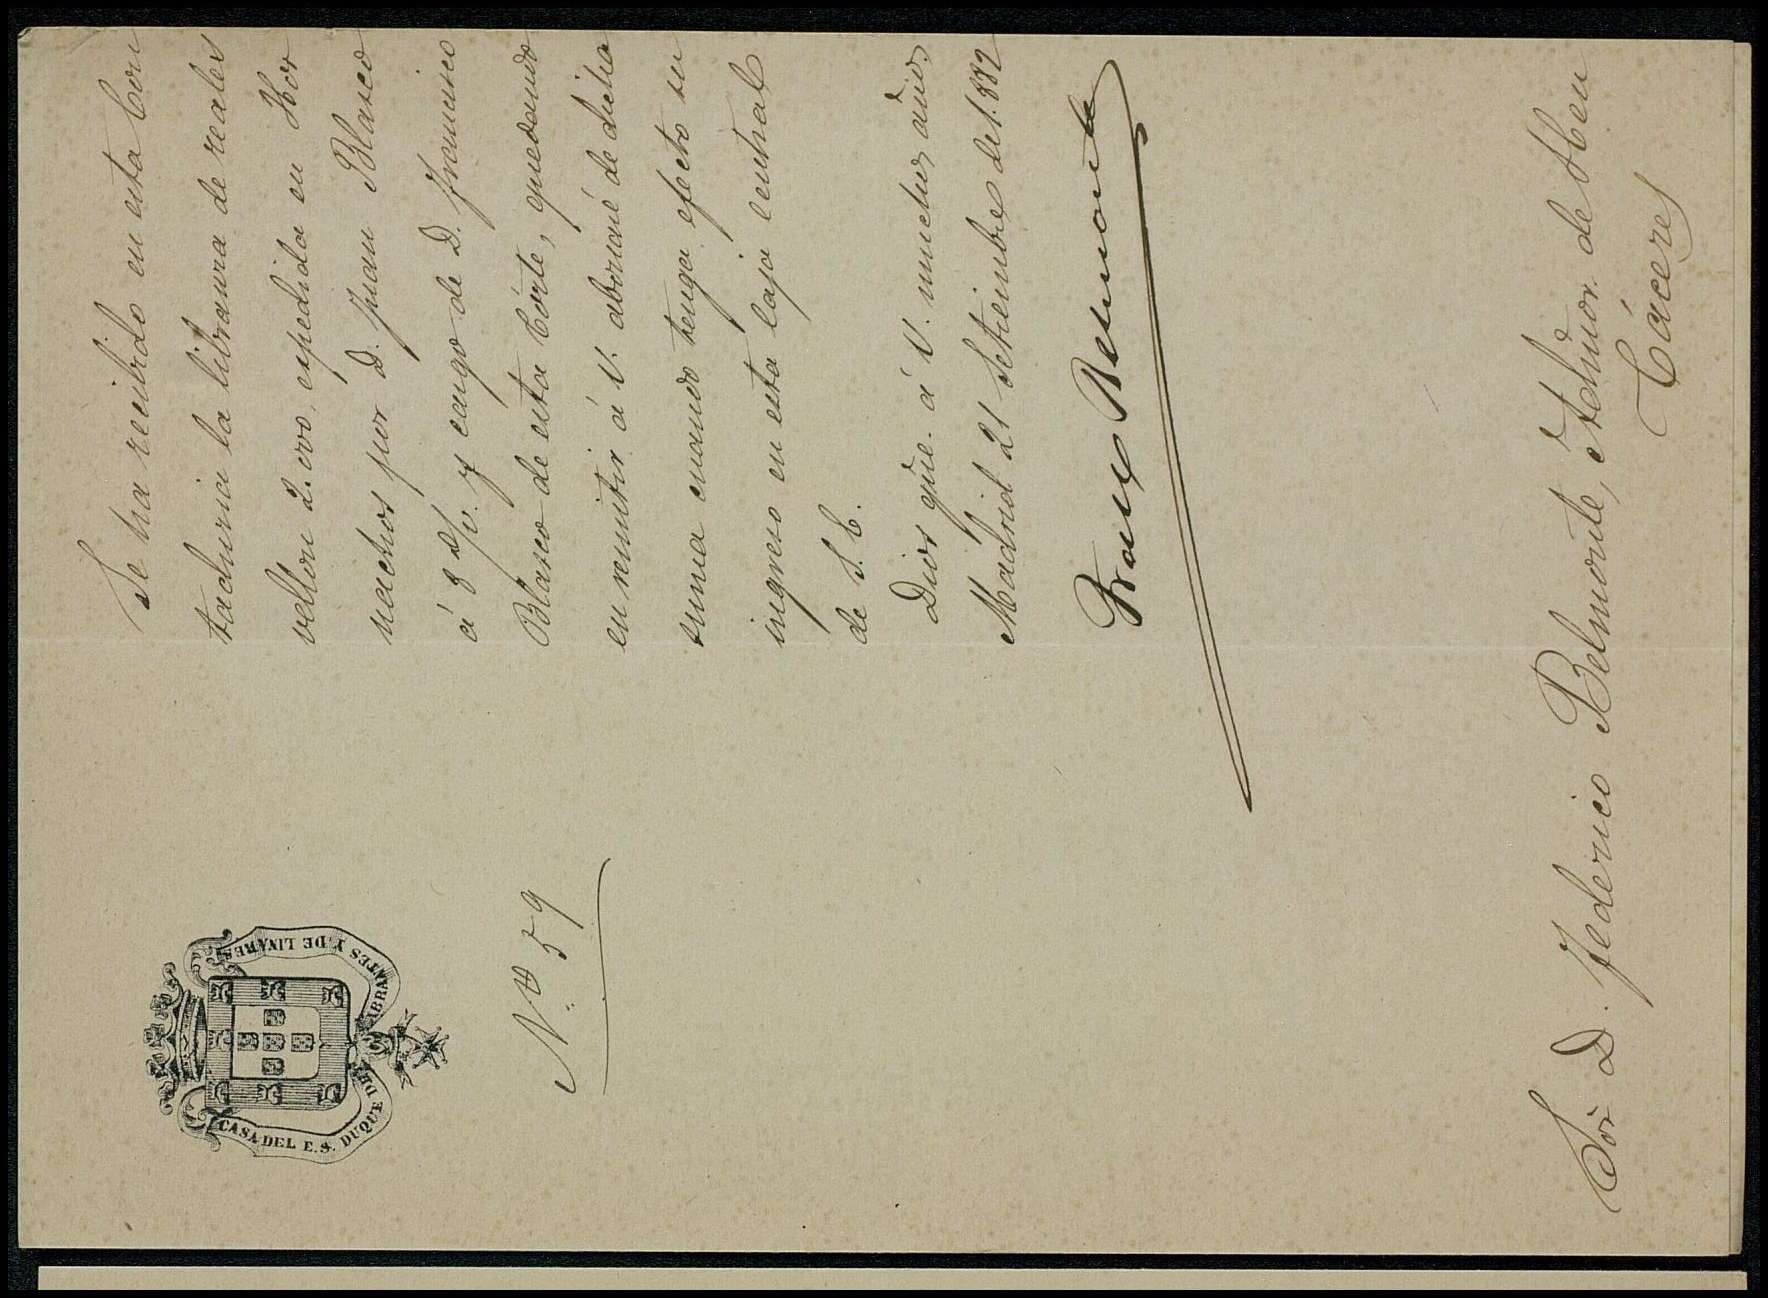 CASA DEL E. S. DUQUE DE ABRANTES Y DE LINARES
N.º 59
Se ha recibido en esta Con
taduria la libranza de reales
vellon 2.000, espedida en Hor
nachos por D. Juan Blasco
á 8 d/v. y cargo de D. Francisco
Blasco de esta Córte, quedando
en remitir á V. abonaré de dicha
suma cuando tenga efecto su
ingreso en esta Caja central
de S. E.
Dios gue. á V. muchos años.
Madrid 21 Setiembre de 1.882
Belmonte
Sor. D. Federico Belmonte, Admor. de
Cáceres